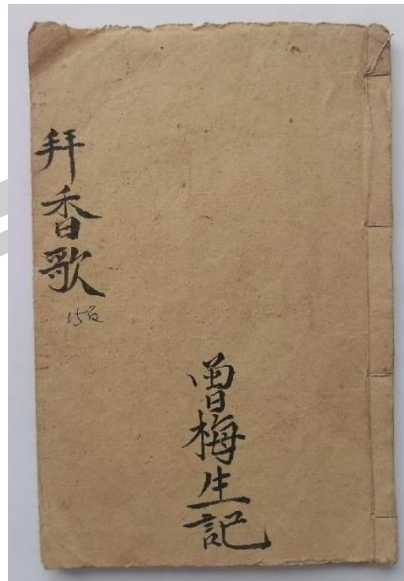 拜香歌
15面
曾梅生記